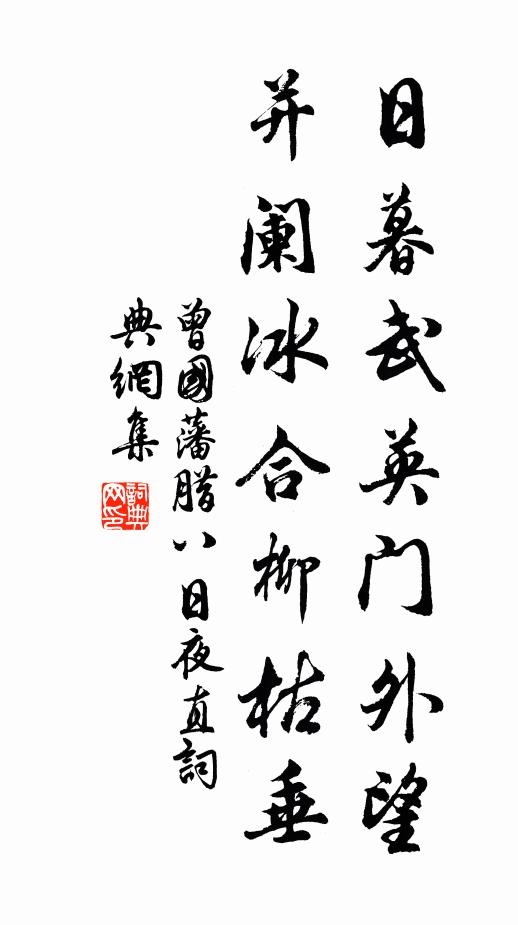 日暮武英门外望
并阑冰合柳枯垂
曾國藩腊八日夜直詞
典網集
詞典
网印